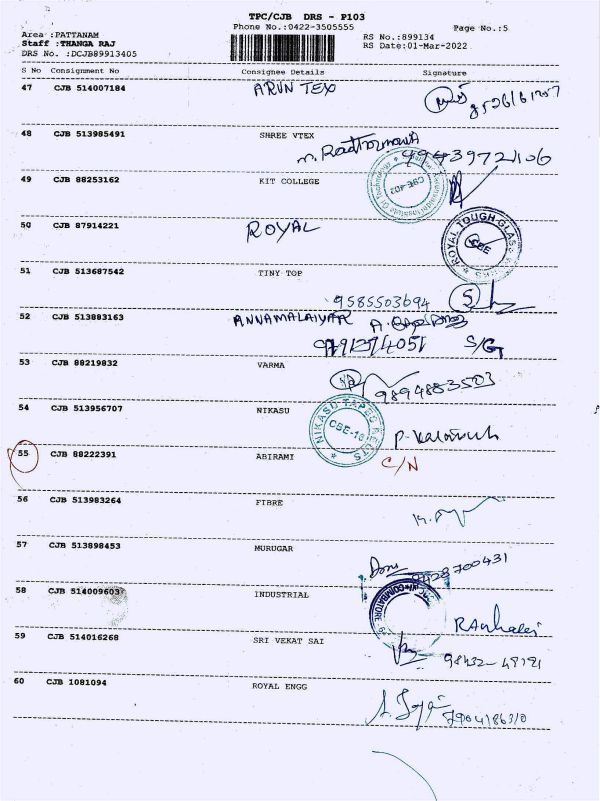 TPC/CJB DRS - P103
Phone No.:0422-3505555
Page No.:5
Area :PATTANAM
RS No.:899134
Staff :THANGA RAJ
RS Date:01-Mar-2022
DRS No. :DCJB89913405
S No Consignment No Consignee Details Signature
47 CJB 514007184 ARUN TEX
48 CJB 513985491 SHREE VTEX
9943972106
49 CJB 88253162 KIT COLLEGE
CBE-402
50 CJB 87914221 ROYAL
ROYAL TOUGH GLASS
CBE
51 CJB 513687542 TINY TOP
9585503694
52 CJB 513883163 ANNAMALAIYAR
S/G
53 CJB 88219832 VARMA
9894883503
54 CJB 513956707 NIKASU
NIKASU TAPEC
CBE-16
55 CJB 88222391 ABIRAMI C/N
56 CJB 513983264 FIBRE
57 CJB 513898453 MURUGAR
58 CJB 514009603 INDUSTRIAL
COIMBATORE
59 CJB 514016268 SRI VEKAT SAI
60 CJB 1081094 ROYAL ENGG